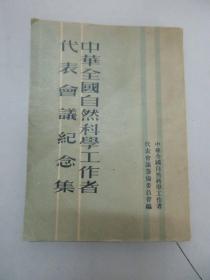 中華全國自然科學工作者
代表會議紀念集
中華全國自然科學工作者
代表會議籌備委員會編